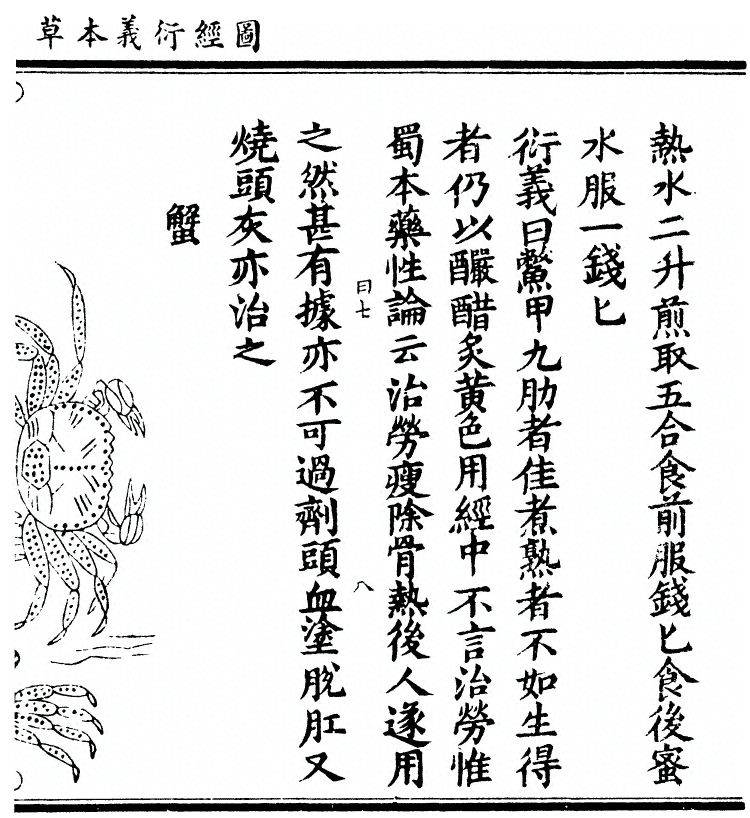 圖經衍義本草
熱水二升煎取五合食前服錢匕食後蜜
水服一錢匕
衍義曰鱉甲九肋者佳煮熟者不如生得
者仍以釅醋炙黃色用經中不言治勞惟
蜀本藥性論云治勞瘦除骨熱後人遂用
曰七
八
之然甚有據亦不可過劑頭血塗脫肛又
燒頭灰亦治之
蟹